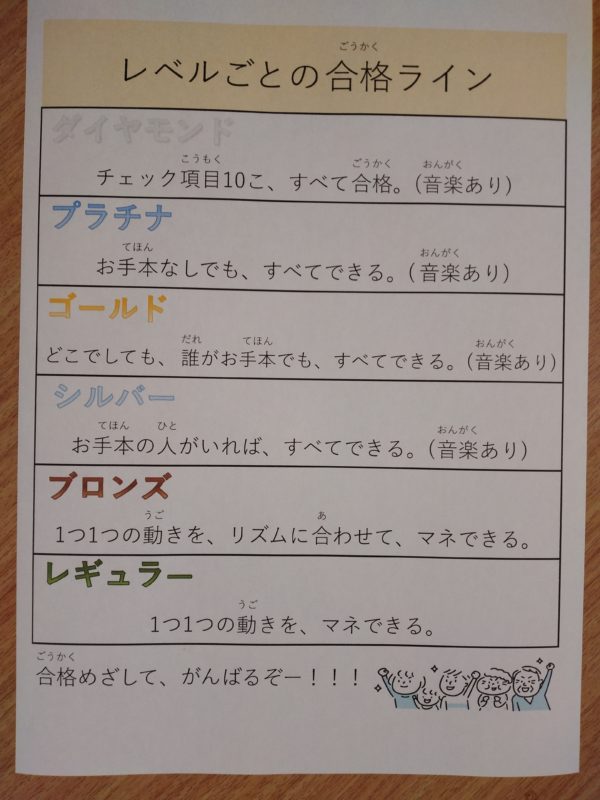 ごうかく
レベルごとの合格ライン
ダイヤモンド
こうもく ごうかく おんがく
チェック項目10こ、すべて合格。(音楽あり)
プラチナ
てほん おんがく
お手本なしでも、すべてできる。(音楽あり)
ゴールド
だれ てほん おんがく
どこでしても、誰がお手本でも、すべてできる。(音楽あり)
シルバー
てほん ひと おんがく
お手本の人がいれば、すべてできる。(音楽あり)
ブロンズ
うご あ
1つ1つの動きを、リズムに合わせて、マネできる。
レギュラー
うご
1つ1つの動きを、マネできる。
ごうかく
合格めざして、がんばるぞー！！！